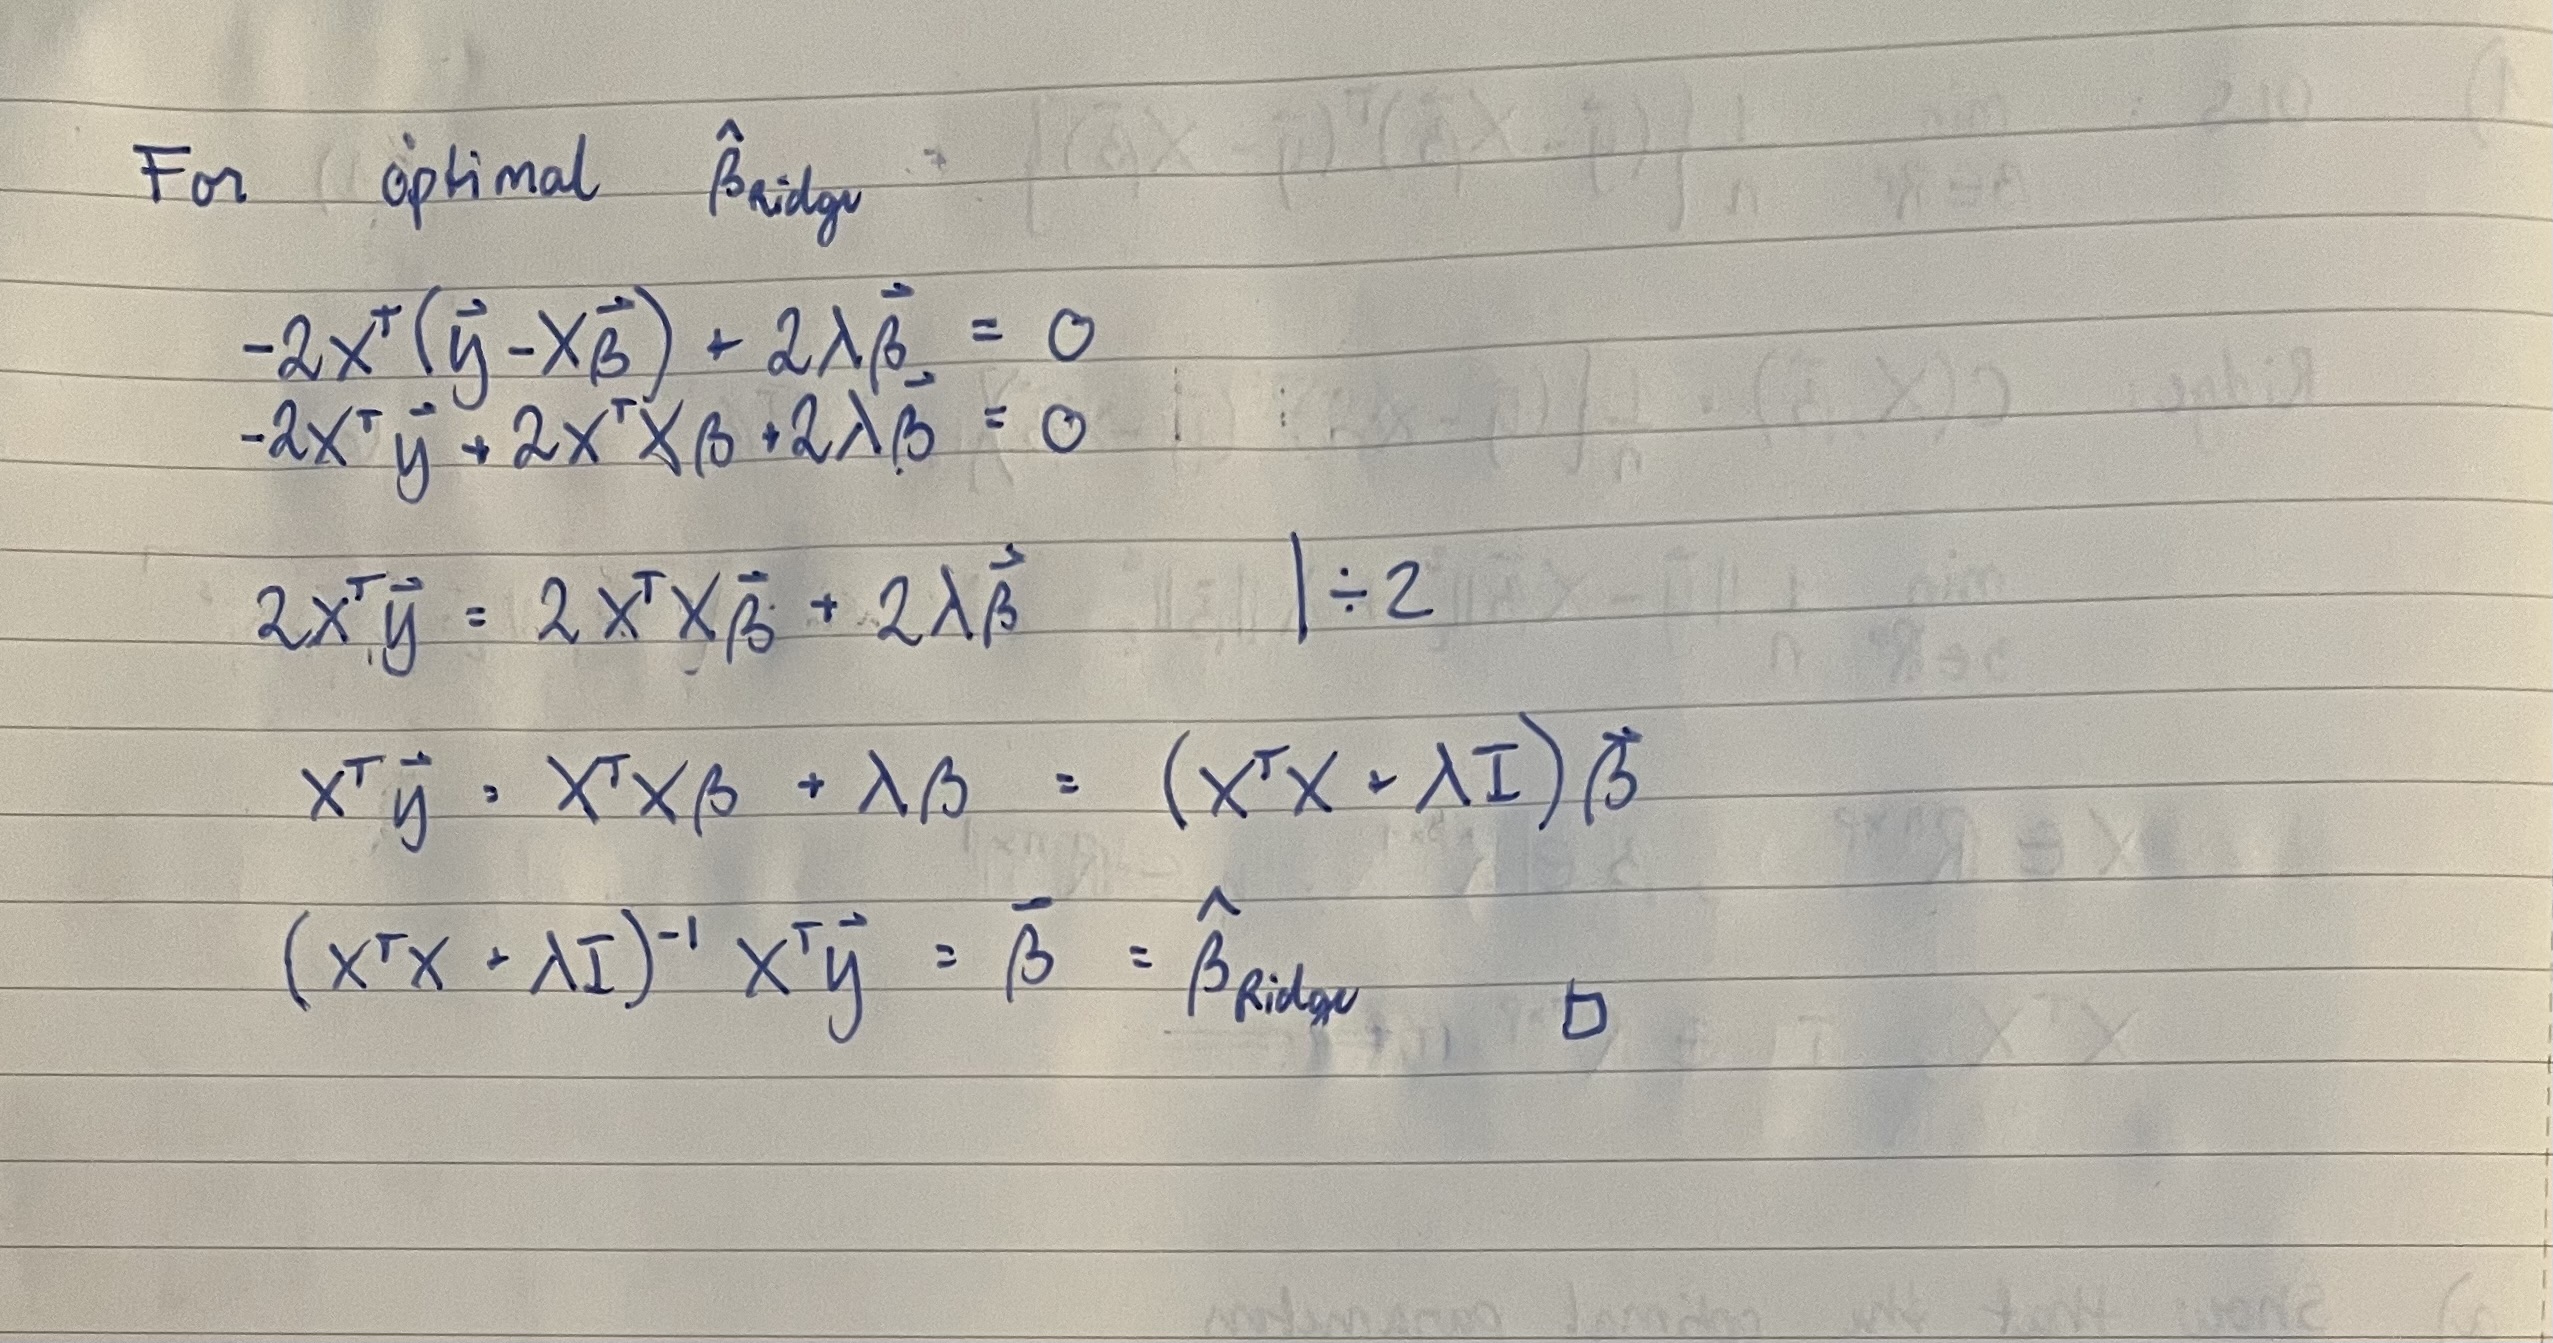 For optimal β̂Ridge
-2Xᵀ(y⃗ - Xβ⃗) + 2λβ⃗ = 0
-2Xᵀy⃗ + 2XᵀXβ + 2λβ⃗ = 0
2Xᵀy⃗ = 2XᵀXβ⃗ + 2λβ⃗ | ÷ 2
Xᵀy⃗ = XᵀXβ + λβ = (XᵀX + λI)β⃗
(XᵀX + λI)⁻¹ Xᵀy⃗ = β⃗ = β̂Ridge □